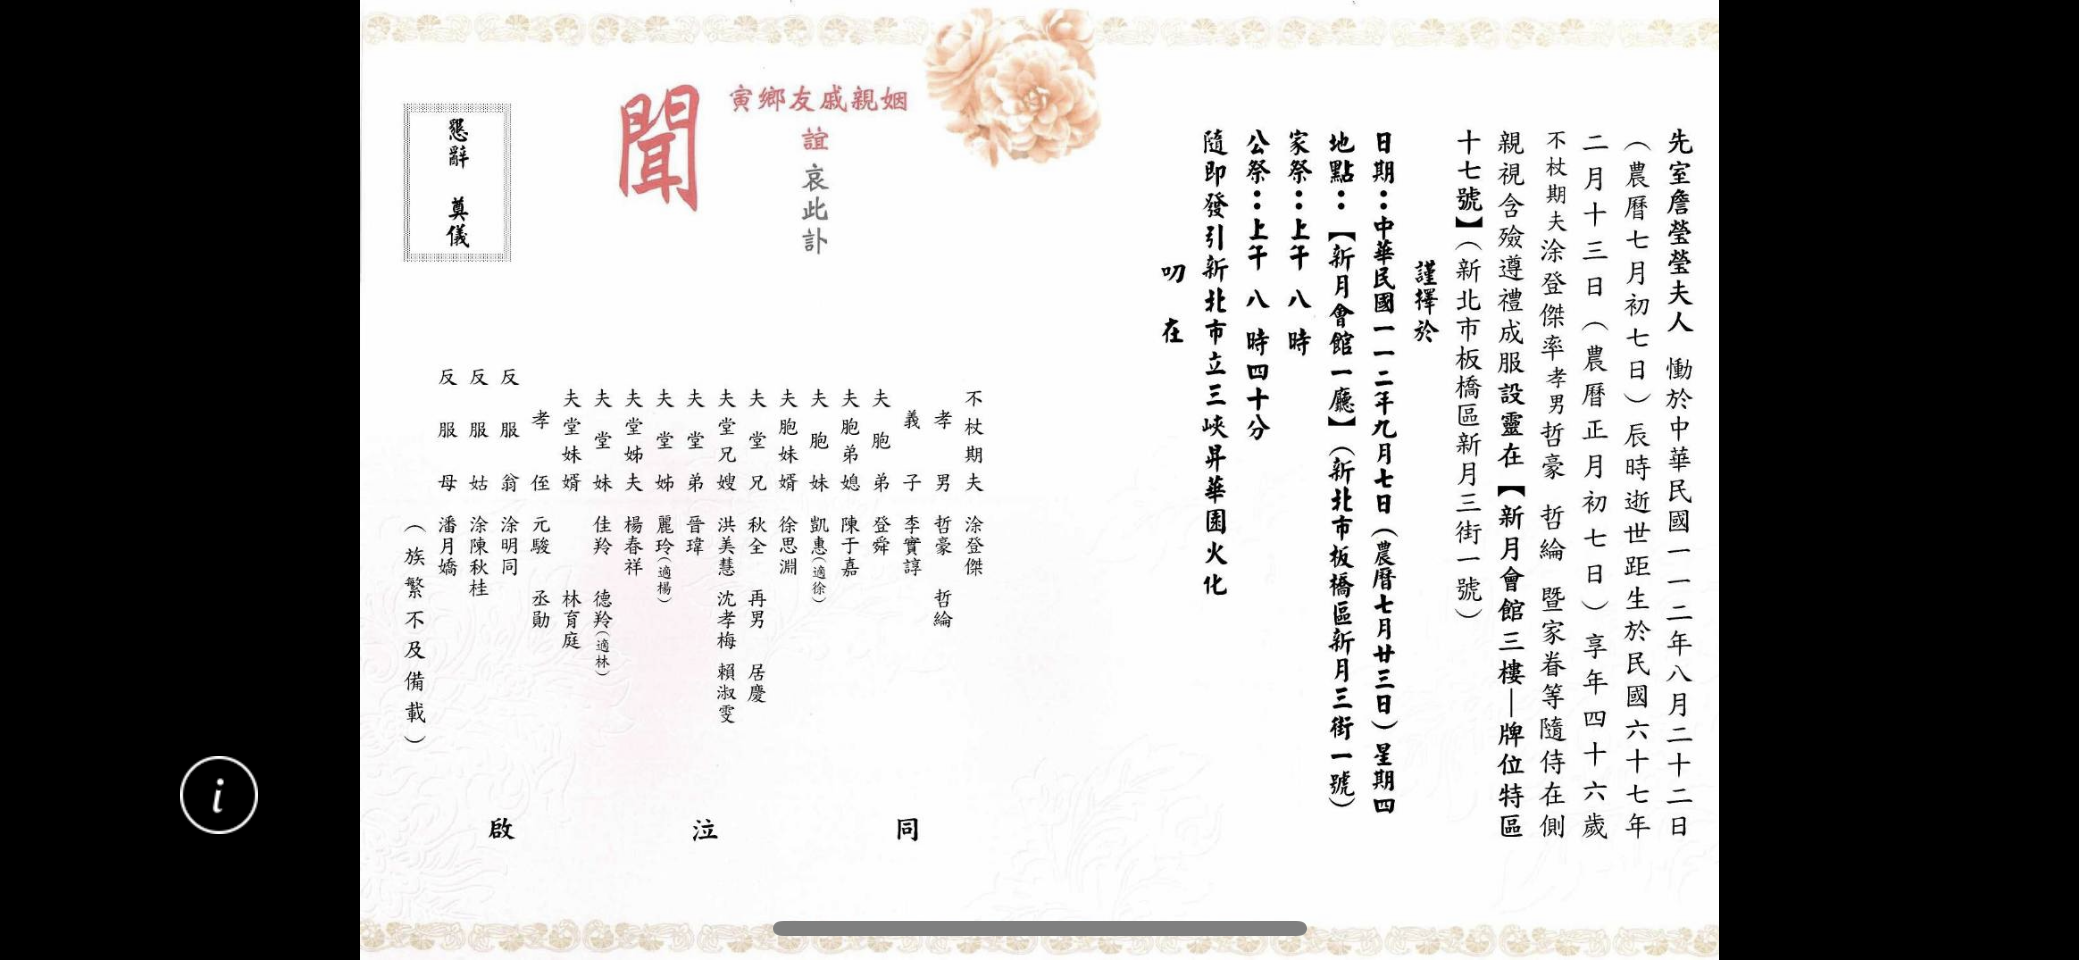 先室詹瑩瑩夫人 慟於中華民國一一二年八月二十二日
（農曆七月初七日）辰時逝世距生於民國六十七年
二月十三日（農曆正月初七日）享年四十六歲
不杖期夫涂登傑率孝男哲豪 哲綸 暨家眷等隨侍在側
親視含殮遵禮成服設靈在【新月會館三樓—牌位特區
十七號】（新北市板橋區新月三街一號）
謹擇於
日期：中華民國一一二年九月七日（農曆七月廿三日）星期四
地點：【新月會館一廳】（新北市板橋區新月三街一號）
家祭：上午 八 時
公祭：上午 八 時四十分
隨即發引新北市立三峽昇華園火化
叨 在
姻親戚友鄉寅
誼
哀此訃
聞
懇辭 奠儀
不杖期夫 涂登傑
孝男 哲豪 哲綸
義子 李實諄
夫胞弟 登舜
夫胞弟媳 陳于嘉
夫胞妹 凱惠（適徐）
夫胞妹婿 徐思淵
夫堂兄 秋全 再男 居慶
夫堂兄嫂 洪美慧 沈孝梅 賴淑雯
夫堂弟 晉瑋
夫堂姊 麗玲（適楊）
夫堂姊夫 楊春祥
夫堂妹 佳羚 德羚（適林）
夫堂妹婿 林育庭
孝侄 元駿 丞勛
反服翁 涂明同
反服姑 涂陳秋桂
反服母 潘月嬌
（族繁不及備載）
同 泣 啟
i